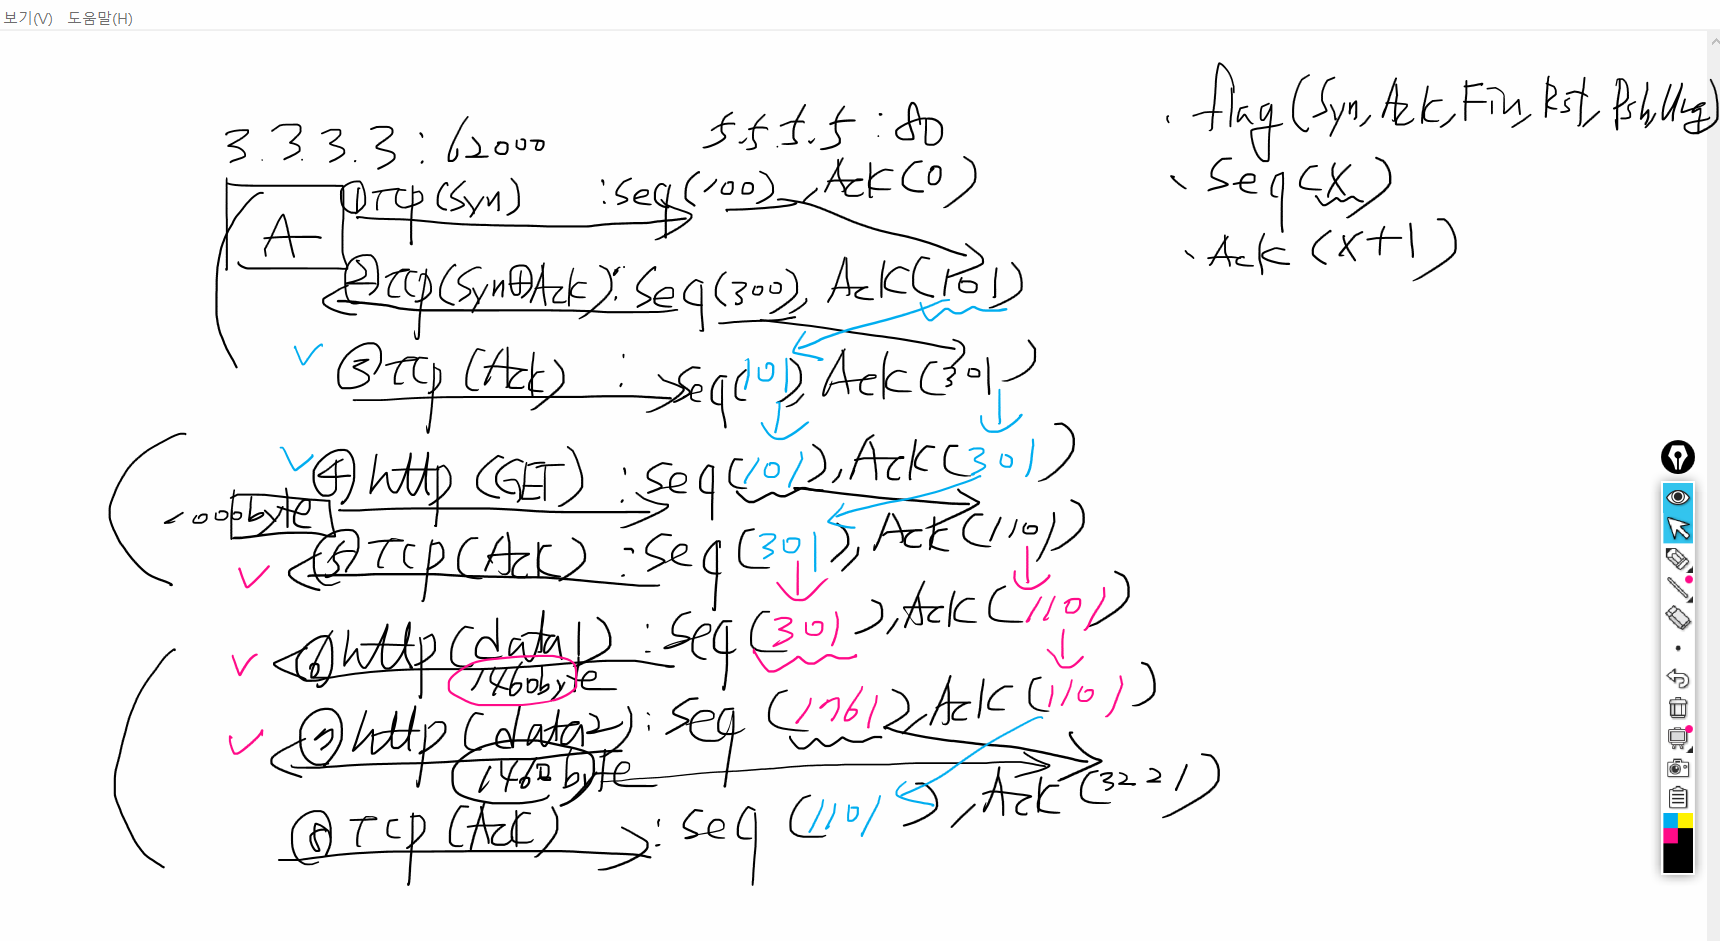 보기(V) 도움말(H)
3.3.3.3:62000 5.5.5.5:80
A
① TCP (Syn) :Seq(100), Ack(0)
② TCP(Syn+Ack): Seq(300), Ack(101)
③ TCP (Ack) : Seq(101), Ack(301)
④ http (GET) :Seq(101), Ack(301)
1000byte
⑤ TCP (Ack) :Seq(301), Ack(1101)
⑥ http (data1) :Seq(301), Ack(1101)
1460byte
⑦ http (data2): Seq (1761), Ack(1101)
1460byte
⑧ TCP (Ack) :Seq (1101), Ack(3221)
· flag(Syn, Ack, Fin, Rst, Psh, Urg)
· Seq(x)
· Ack (x+1)